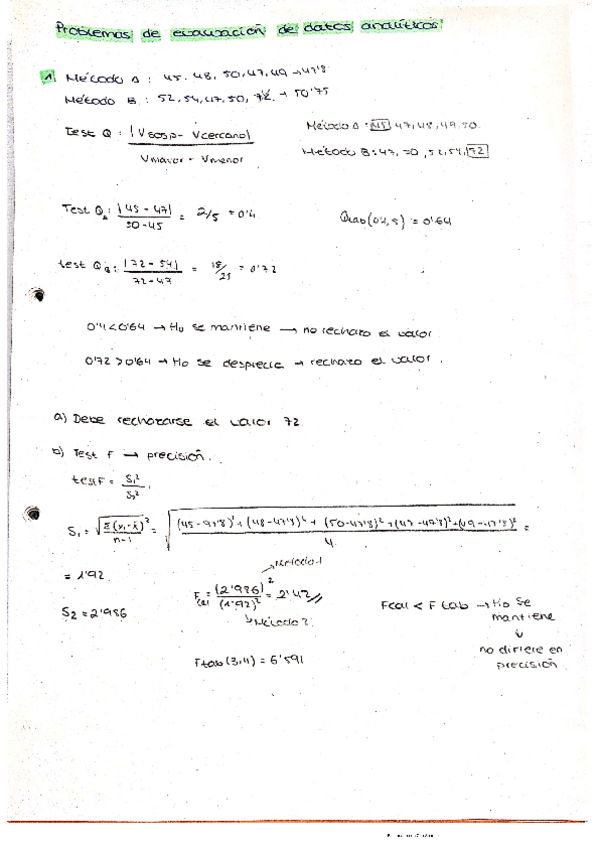 Problemas de evaluación de datos analíticos
1 Método A : 45, 48, 50, 47, 49 → 47'8
Método B : 52, 54, 47, 50, 72. → 50'75
Test Q : |Vsosp - Vcercano| / Vmayor - Vmenor
Método A : 45, 47, 48, 49, 50.
Método B: 47, 50, 52, 54, 72
Test QA: |45 - 47| / 50 - 45 = 2/5 = 0'4
Qtab (0'1, 5) = 0'64
test QB: |72 - 54| / 72 - 47 = 18/25 = 0'72
0'4 < 0'64 → Ho se mantiene → no rechazo el valor
0'72 > 0'64 → Ho se desprecia → rechazo el valor.
a) Debe rechazarse el valor 72
b) Test F → precisión.
test F = S1² / S2²
S1 = √ Σ(xi - x̄)² / n-1 = √ (45 - 47'8)² + (48 - 47'8)² + (50 - 47'8)² + (47 - 47'8)² + (49 - 47'8)² / 4 =
= 1'92
S2 = 2'986
Fcal = (2'986)² / (1'92)² = 2'42
→ Método 1
→ Método 2
Fcal < Ftab → Ho se
mantiene
↓
no difiere en
precisión
Ftab (3,4) = 6'591